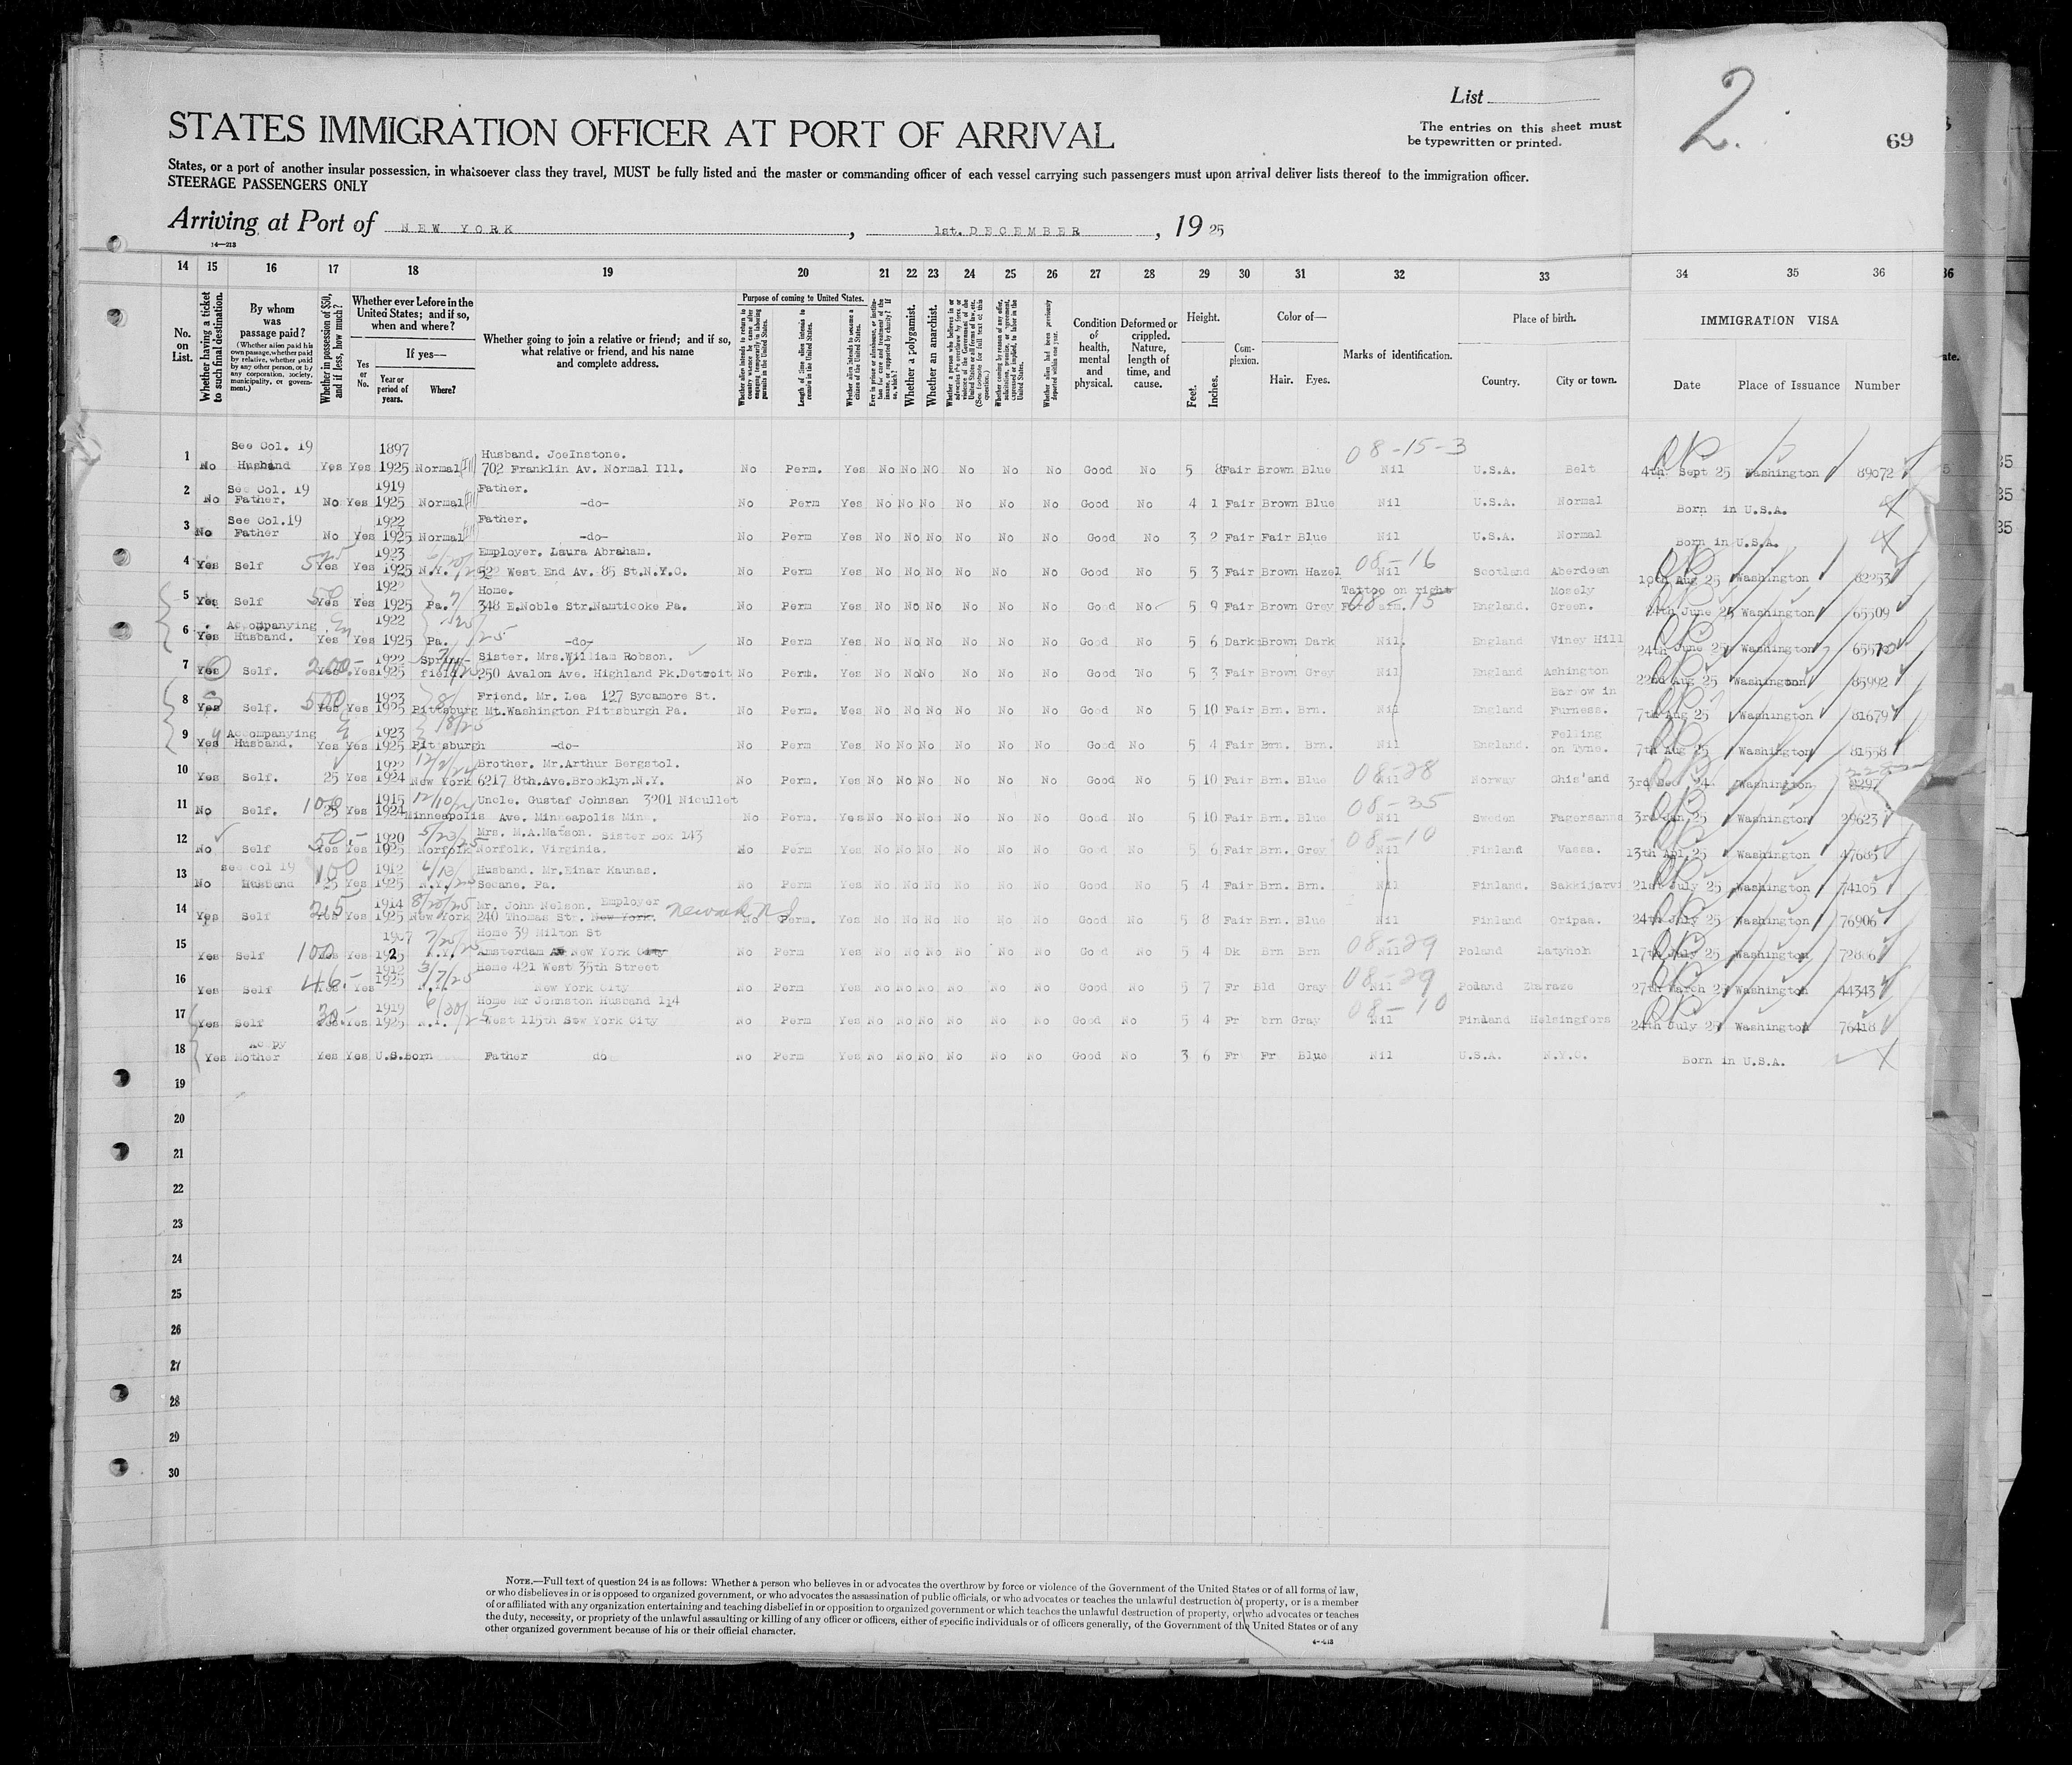 List
STATES IMMIGRATION OFFICER AT PORT OF ARRIVAL
The entries on this sheet must
be typewritten or printed.
2.
69
States, or a port of another insular possession, in whatsoever class they travel, MUST be fully listed and the master or commanding officer of each vessel carrying such passengers must upon arrival deliver lists thereof to the immigration officer.
STEERAGE PASSENGERS ONLY
Arriving at Port of NEW YORK, 1st. DECEMBER, 19 25
14—213
14 15 16 17 18 19 20 21 22 23 24 25 26 27 28 29 30 31 32 33 34 35 36
No. on List.
Whether having a ticket to such final destination.
By whom was passage paid?
(Whether alien paid his own passage, whether paid by relative, whether paid by any other person, or by any corporation, society, municipality, or government.)
Whether in possession of $50, and if less, how much?
Whether ever before in the United States; and if so, when and where?
Yes or No.
If yes—
Year or period of years.
Where?
Whether going to join a relative or friend; and if so, what relative or friend, and his name and complete address.
Purpose of coming to United States.
Whether a polygamist.
Whether an anarchist.
Condition of health, mental and physical.
Deformed or crippled. Nature, length of time, and cause.
Height.
Feet. Inches.
Complexion.
Color of—
Hair. Eyes.
Marks of identification.
Place of birth.
Country. City or town.
IMMIGRATION VISA
Date Place of Issuance Number
See Col. 19 1897 Husband. JoeInstone. 08-15-3
1 No Husband Yes Yes 1925 Normal Ill 702 Franklin Av. Normal Ill. No Perm. Yes No No NO No No No Good No 5 8 Fair Brown Blue Nil U.S.A. Belt 4th. Sept 25 Washington 89072
See Col. 19 1919 Father.
2 No Father. No Yes 1925 Normal Ill -do- No Perm Yes No No No No No No Good No 4 1 Fair Brown Blue Nil U.S.A. Normal Born in U.S.A.
See Col.19 1922 Father.
3 No Father No Yes 1925 Normal Ill -do- No Perm Yes No No No No No No Good No 3 2 Fair Fair Blue Nil U.S.A. Normal Born in U.S.A.
1923 Employer. Laura Abraham. 08-16
4 Yes Self Yes Yes 1925 N.Y. 522 West End Av. 85 St.N.Y.C. No Perm Yes No No No No No No Good No 5 3 Fair Brown Hazel Nil Scotland Aberdeen 10th Aug 25 Washington 82253
1922 Home. Tattoo on right Mosely
5 Yes Self 50 Yes Yes 1925 Pa. 348 E.Noble Str.Nanticoke Pa. No Perm Yes No No No No No No Good No 5 9 Fair Brown Grey 08-15 England. Green. 24th June 25 Washington 65509
Accompanying 1922
6 Yes Husband. Yes Yes 1925 Pa. -do- No Perm Yes No No No No No No Good No 5 6 Dark Brown Dark Nil. England Viney Hill 24th June 25 Washington 65510
1922 Spring- Sister. Mrs.William Robson.
7 Yes Self. 200- Yes Yes 1925 field. 250 Avalon Ave. Highland Pk.Detroit No Perm. Yes No No No No No No Good No 5 3 Fair Brown Grey Nil England Ashington 22nd Aug 25 Washington 85992
1923 Friend. Mr. Lea 127 Sycamore St. Bar ow in
8 Yes Self. 500 Yes Yes 1925 Pittsburg Mt.Washington Pittsburgh Pa. No Perm. Yes No No No No No No Good No 5 10 Fair Brn. Brn. Nil England Furness. 7th Aug 25 Washington 81679
Accompanying 1923 Felling
9 Yes Husband. Yes Yes 1925 Pittsburgh -do- No Perm Yes No No No No No No Good No 5 4 Fair Brn. Brn. Nil England. on Tyne. 7th Aug 25 Washington 81558
1922 Brother. Mr.Arthur Bergstol. 08-28
10 Yes Self. 25 Yes 1924 New York 6217 8th.Ave.Brooklyn.N.Y. No Perm. Yes No No No No No No Good No 5 10 Fair Brn. Blue Nil Norway 3rd Dec 24. Washington
1915 12/10/24 Uncle. Gustaf Johnsen 3201 Nicullet 08-35
11 No Self. 100 25 Yes 1924 Minneapolis Ave. Minneapolis Min. No Perm. Yes No No No No No No Good No 5 10 Fair Brn. Blue Nil Sweden 3rd Jan. 25 Washington 29623
1920 5/23/25 Mrs. M.A.Matson. Sister Box 143 08-10
12 No Self 50.- Yes Yes 1925 Norfolk Norfolk. Virginia. No Perm Yes No No No No No No Good No 5 6 Fair Brn. Grey Nil Finland Vassa. 13th Apl.25 Washington 47685
see col 19 100 1912 6/13/25 Husband. Mr.Einar Kaunas.
13 No Husband 25 Yes 1925 N.Y. Secane. Pa. No Perm Yes No No No No No No Good No 5 4 Fair Brn. Brn. Nil Finland. Sakkijarvi 21st July 25 Washington 74105
1914 8/20/25 Mr. John Nelson. Employer
14 Yes Self Yes Yes 1925 New York 240 Thomas St. New York. Newark NJ No Perm. Yes No No No No No No Good No 5 8 Fair Brn. Blue Nil Finland Oripaa. 24th July 25 Washington 76906
1907 Home 39 Milton St
15 Yes Self 100 Yes Yes 1925 N.Y. Amsterdam New York City No Perm Yes No No No No No No Good No 5 4 Dk Brn Brn 08-29 Nil Poland 17th July 25 Washington 72806
1912 3/7/25 Home 421 West 35th Street
16 Yes Self 46.- Yes 1925 New York City No Perm Yes No No No No No No Good No 5 7 Fr Bld Gray 08-29 Nil Poland 27th March 25 Washington 44343
1919 6/30/25 Home Mr Johnston Husband 114
17 Yes Self 30- Yes Yes 1925 N.Y. West 115th Stew York City No Perm Yes No No No No No No Good No 5 4 Fr brn Gray 08-10 Nil Finland Helsingfors 24th July 25 Washington 76418
18 Yes Mother Yes Yes U.S.Born Father do No Perm Yes No No No No No No Good No 3 6 Fr Fr Blue Nil U.S.A. N.Y.C. Born in U.S.A.
19
20
21
22
23
24
25
26
27
28
29
30
NOTE.—Full text of question 24 is as follows: Whether a person who believes in or advocates the overthrow by force or violence of the Government of the United States or of all forms of law,
or who disbelieves in or is opposed to organized government, or who advocates the assassination of public officials, or who advocates or teaches the unlawful destruction of property, or is a member
of or affiliated with any organization entertaining and teaching disbelief in or opposition to organized government or which teaches the unlawful destruction of property, or who advocates or teaches
the duty, necessity, or propriety of the unlawful assaulting or killing of any officer or officers, either of specific individuals or of officers generally, of the Government of the United States or of any
other organized government because of his or their official character.